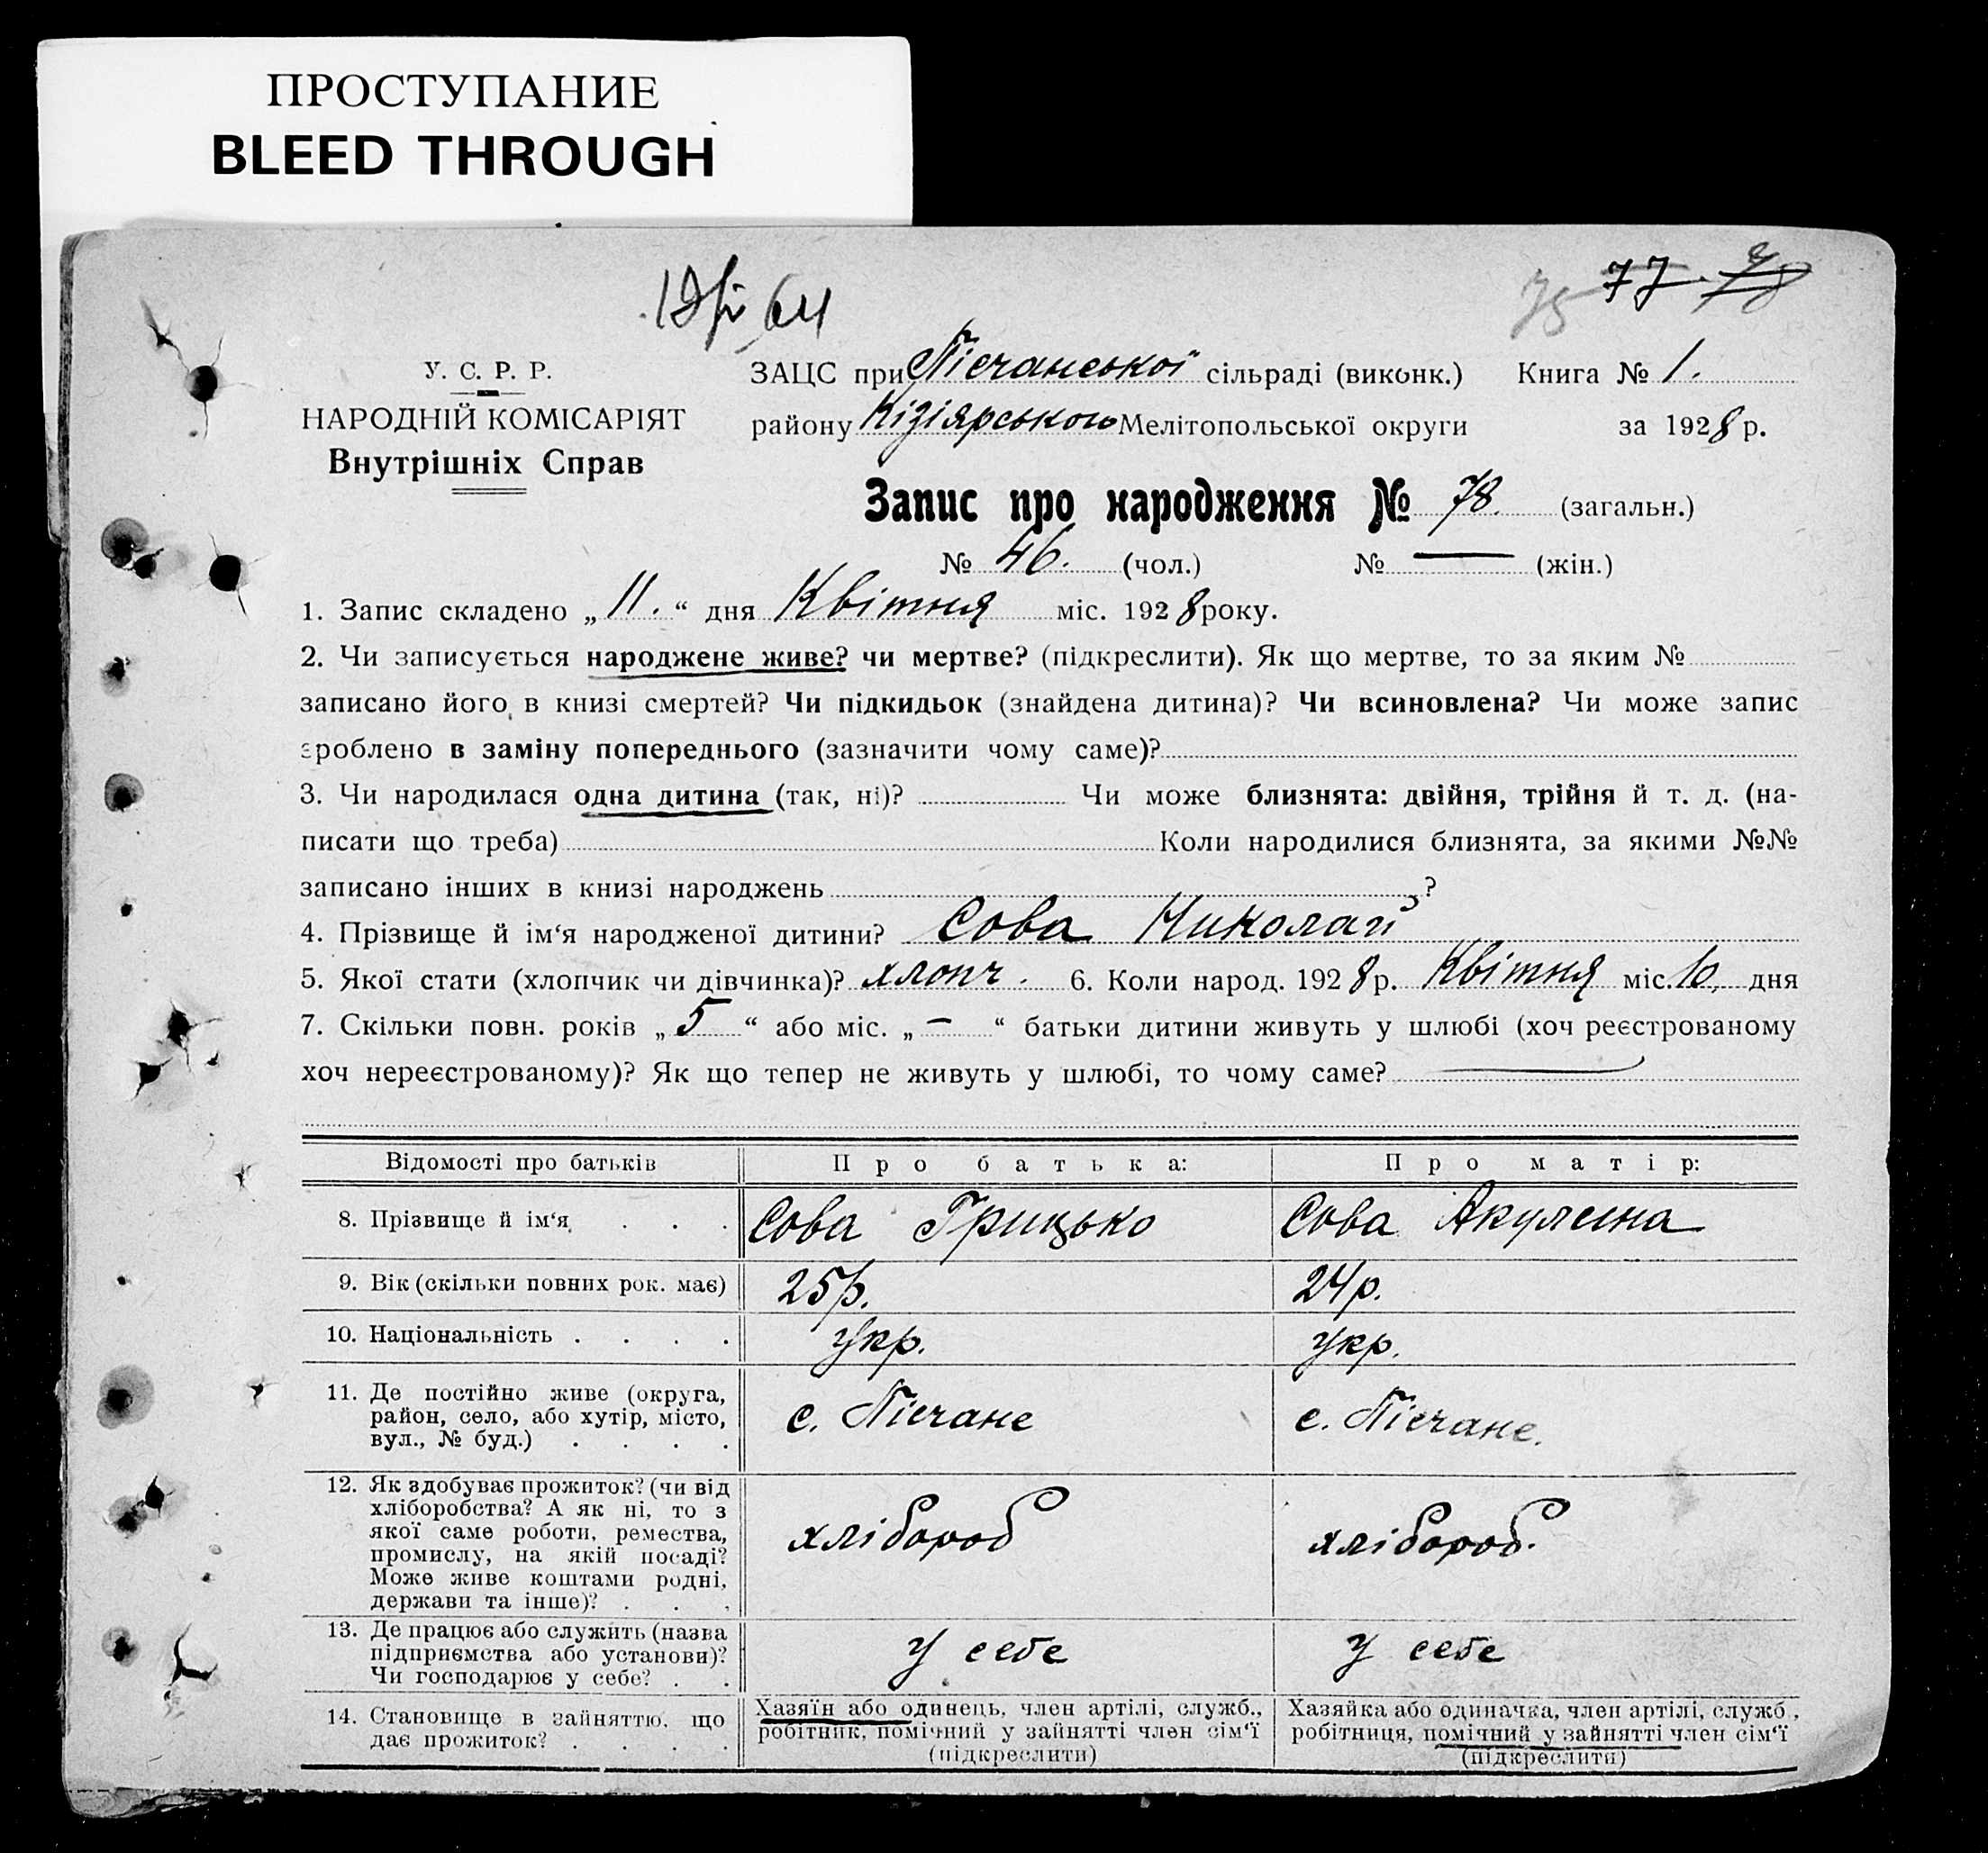 ПРОСТУПАНИЕ
BLEED THROUGH
77
У. С. Р. Р.
НАРОДНІЙ КОМІСАРІЯТ
Внутрішніх Справ
ЗАЦС при Пісчанської сільраді (виконк.) Книга № 1.
району Кізіярського Мелітопольської округи за 1928 р.
Запис про народження № 78. (загальн.)
№ 46. (чол.) № — (жін.)
1. Запис складено „ 11. “ дня Квітня міс. 1928 року.
2. Чи записується народжене живе? чи мертве? (підкреслити). Як що мертве, то за яким №
записано його в книзі смертей? Чи підкидьок (знайдена дитина)? Чи всиновлена? Чи може запис
зроблено в заміну попереднього (зазначити чому саме)?
3. Чи народилася одна дитина (так, ні)? Чи може близнята: двійня, трійня й т. д. (на-
писати що треба) Коли народилися близнята, за якими №№
записано інших в книзі народжень ?
4. Прізвище й ім‘я народженої дитини? Сова Николай
5. Якої стати (хлопчик чи дівчинка)? хлопч. 6. Коли народ. 1928 р. Квітня міс. 10, дня
7. Скільки повн. років „ 5 “ або міс. „ — “ батьки дитини живуть у шлюбі (хоч реєстрованому
хоч нереєстрованому)? Як що тепер не живуть у шлюбі, то чому саме? —
Відомості про батьків Про батька: Про матір:
8. Прізвище й ім‘я . . . Сова Грицько Сова Акулина
9. Вік (скільки повних рок. має) 25р. 24р.
10. Національність . . . . укр. укр.
11. Де постійно живе (округа,
район, село, або хутір, місто,
вул., № буд.) . . . .
с. Пісчане с. Пісчане.
12. Як здобуває прожиток? (чи від
хліборобства? А як ні, то з
якої саме роботи, ремества,
промислу, на якій посаді?
Може живе коштами родні,
держави та інше)? . . .
хлібороб хлібороб.
13. Де працює або служить (назва
підприємства або установи)?
Чи господарює у себе? . .
у себе у себе
14. Становище в зайняттю, що
дає прожиток? . . . .
Хазяїн або одинець, член артілі, служб.,
робітник, помічний у зайнятті член сім‘ї
(підкреслити)
Хазяйка або одиначка, член артілі, служб.,
робітниця, помічний у зайнятті член сім‘ї
(підкреслити)